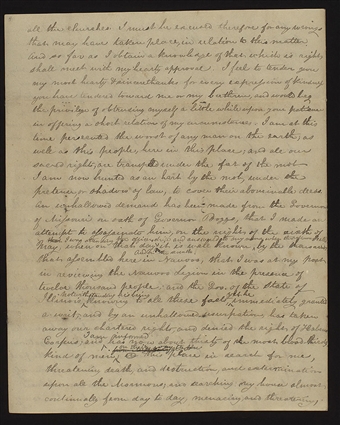 all the churches I must be excused therefore for any wrong
that may have taken place, in relation to this matter
and so far as I obtain a knowledge of that which is right
shall meet with my hearty approval. I feel to tender you
my most hearty & sincere thanks for every expression of kindness
you have tendered toward me or my brethren, and would beg
the privilege of obtruding myself a little while upon your patience
in offering a short relation of my circumstances. I am at this
time persecuted the worst of any man on the earth, as
well as this people, here in this place; and all our
sacred rights are trampled under the feet of the mob
I am now hunted as an hart by the mob, under the
pretence or shadow of law, to cover their abominable deeds
an unhallowed demand has been made from the Governor
of Missouri on oath of Governor Boggs, that I made an
attempt to assassinate him on the night of the sixth of
May, when on that day
that assembled here in Nauvoo, that I was at my post
in reviewing the Nauvoo Legion in the presence of
twelve thousand people and the Gov. of the State of
Illinois, knowing to all these facts immediately granted
a writ, and by an unhallowed usurpation has taken
away our chartered rights and denied the right of Habeas
Corpus, and has now about thirty of the most blood thirsty
kind of men, to this place in search for me,
threatening death and destruction, and extermination
upon all the Mormons, and searching my house almost
continually from day to day, menacing and threatening,